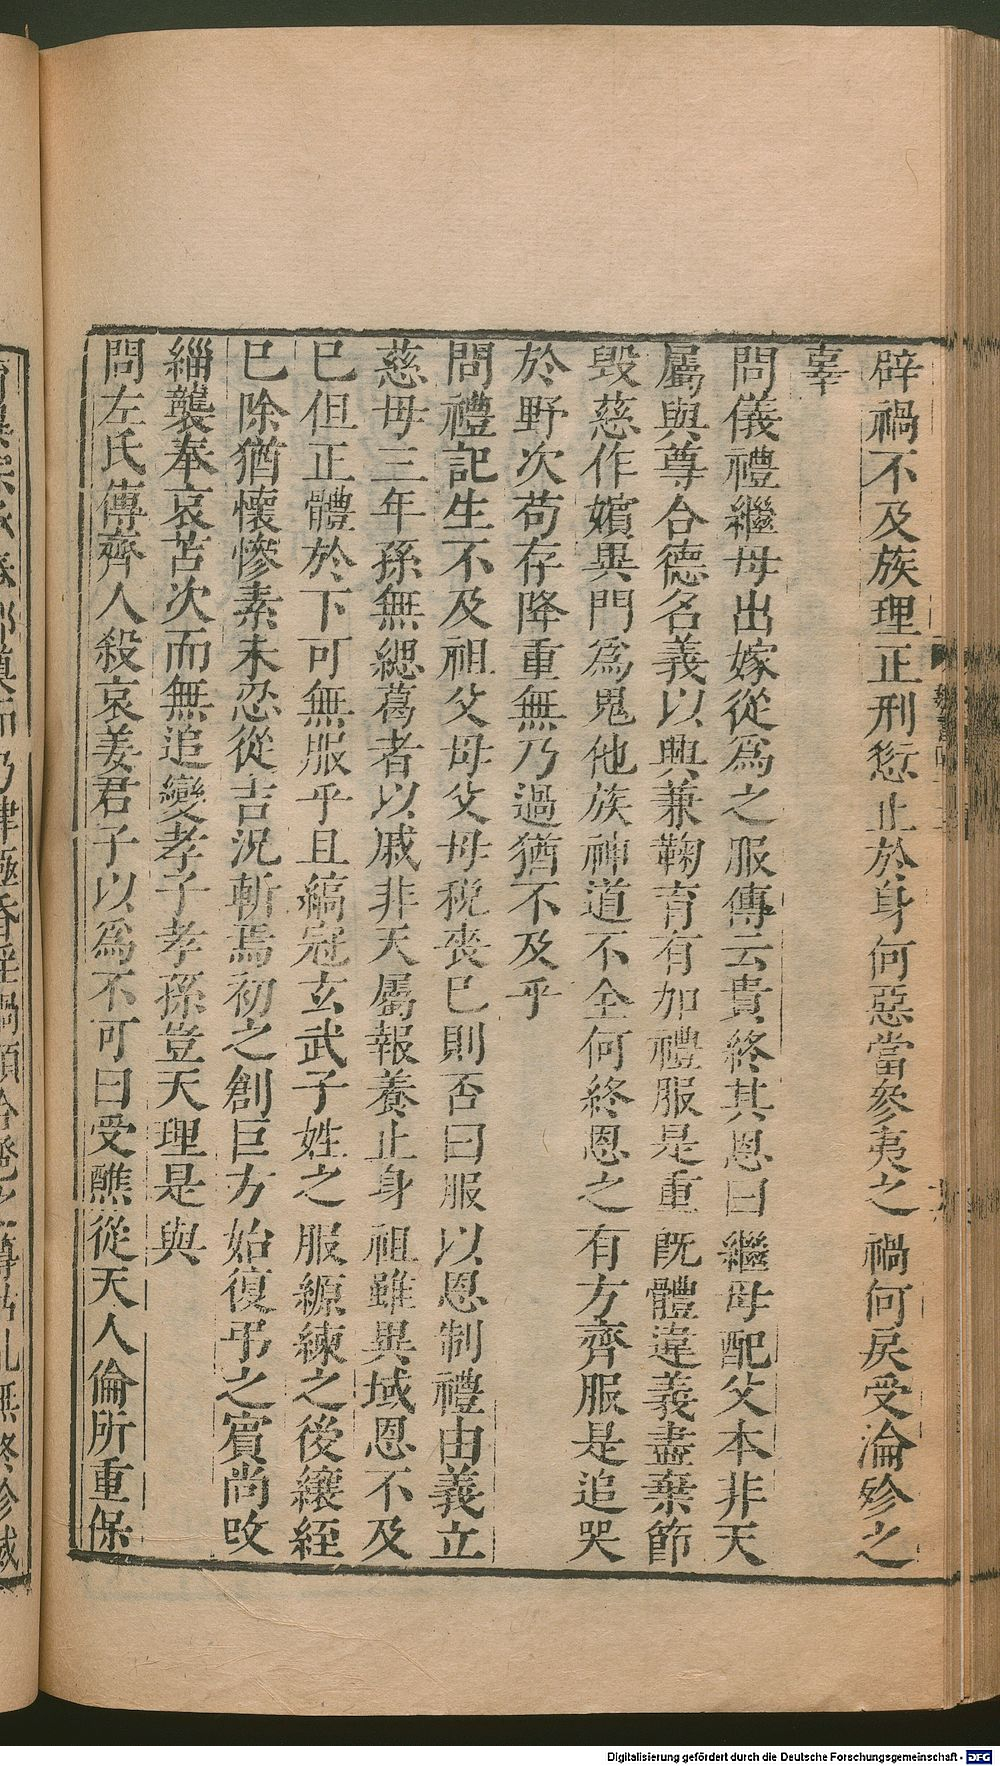 辟禍不及族理正刑愆止於身何惡當參夷之禍何戾受淪殄之
辜
問儀禮繼母出嫁從爲之服傳云貴終其恩曰繼母配父本非天
屬與尊合德名義以興兼鞠育有加禮服是重既體違義盡棄節
毀慈作嬪異門爲鬼他族神道不全何終恩之有方齊服是追哭
於野次苟存降重無乃過猶不及乎
問禮記生不及祖父母父母稅喪已則否曰服以恩制禮由義立
慈母三年孫無緦葛者以戚非天屬報養止身祖雖異域恩不及
已但正體於下可無服乎且縞冠玄武子姓之服縓練之後纕絰
已除猶懷慘素未忍從吉況斬焉初之創巨方始復弔之賓尚改
緇襲奉哀苫次而無追變孝子孝孫豈天理是與
問左氏傳齊人殺哀姜君子以爲不可曰受醮從天人倫所重保
Digitalisierung gefördert durch die Deutsche Forschungsgemeinschaft - DFG